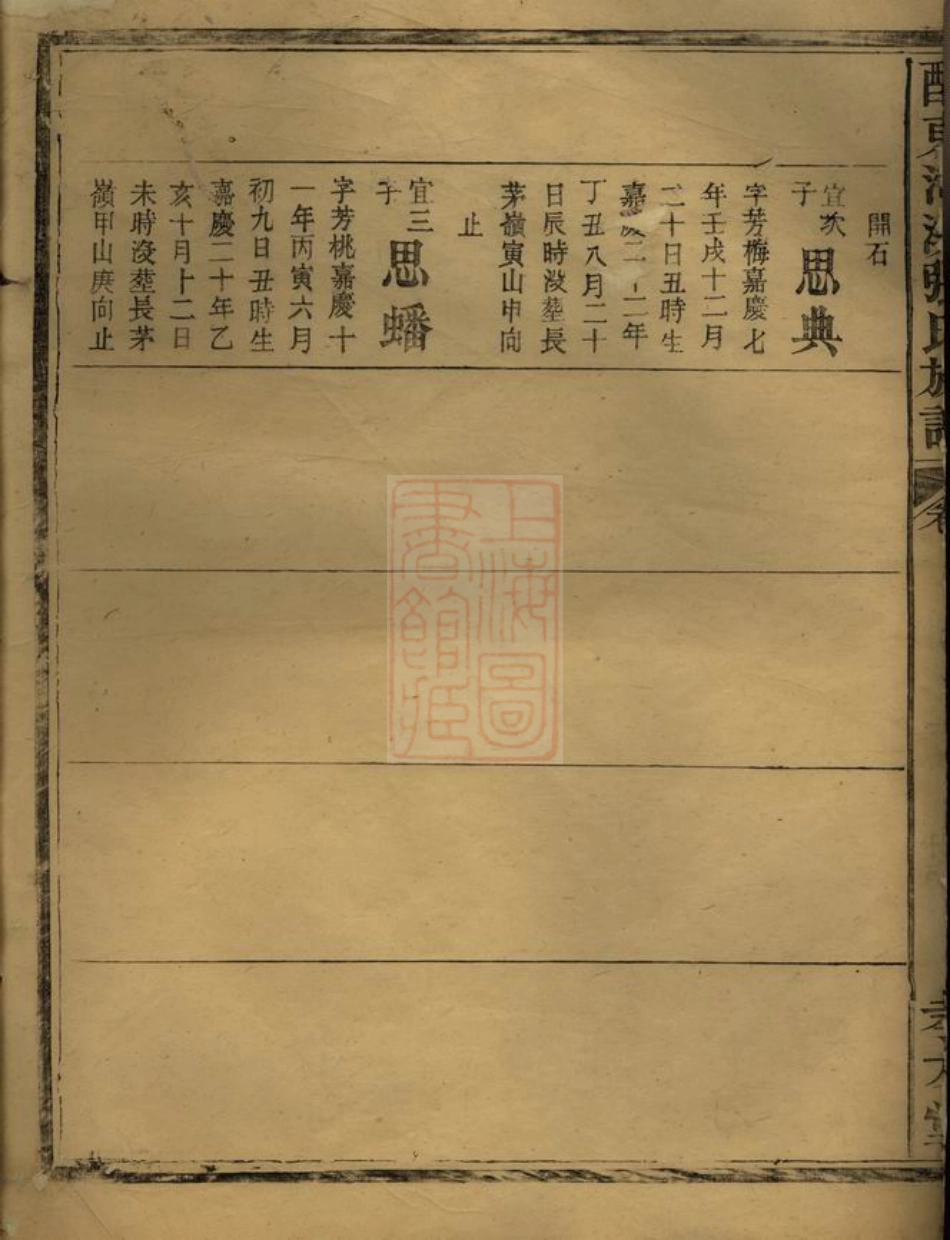 開石
宜次
子
思典
字芳梅嘉慶七
年壬戌十二月
二十日丑時生
嘉慶二十二年
丁丑八月二十
日辰時沒塟長
茅嶺寅山申向
止
宜三
子
思蟠
字芳桃嘉慶十
一年丙寅六月
初九日丑時生
嘉慶二十年乙
亥十月十二日
未時沒塟長茅
嶺甲山庚向止
上海圖
書館藏